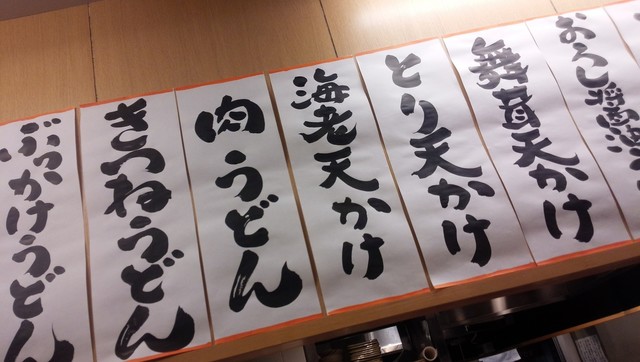 ぶっかけうどん
きつねうどん
肉うどん
海老天かけ
とり天かけ
舞茸天かけ
おろし醤油